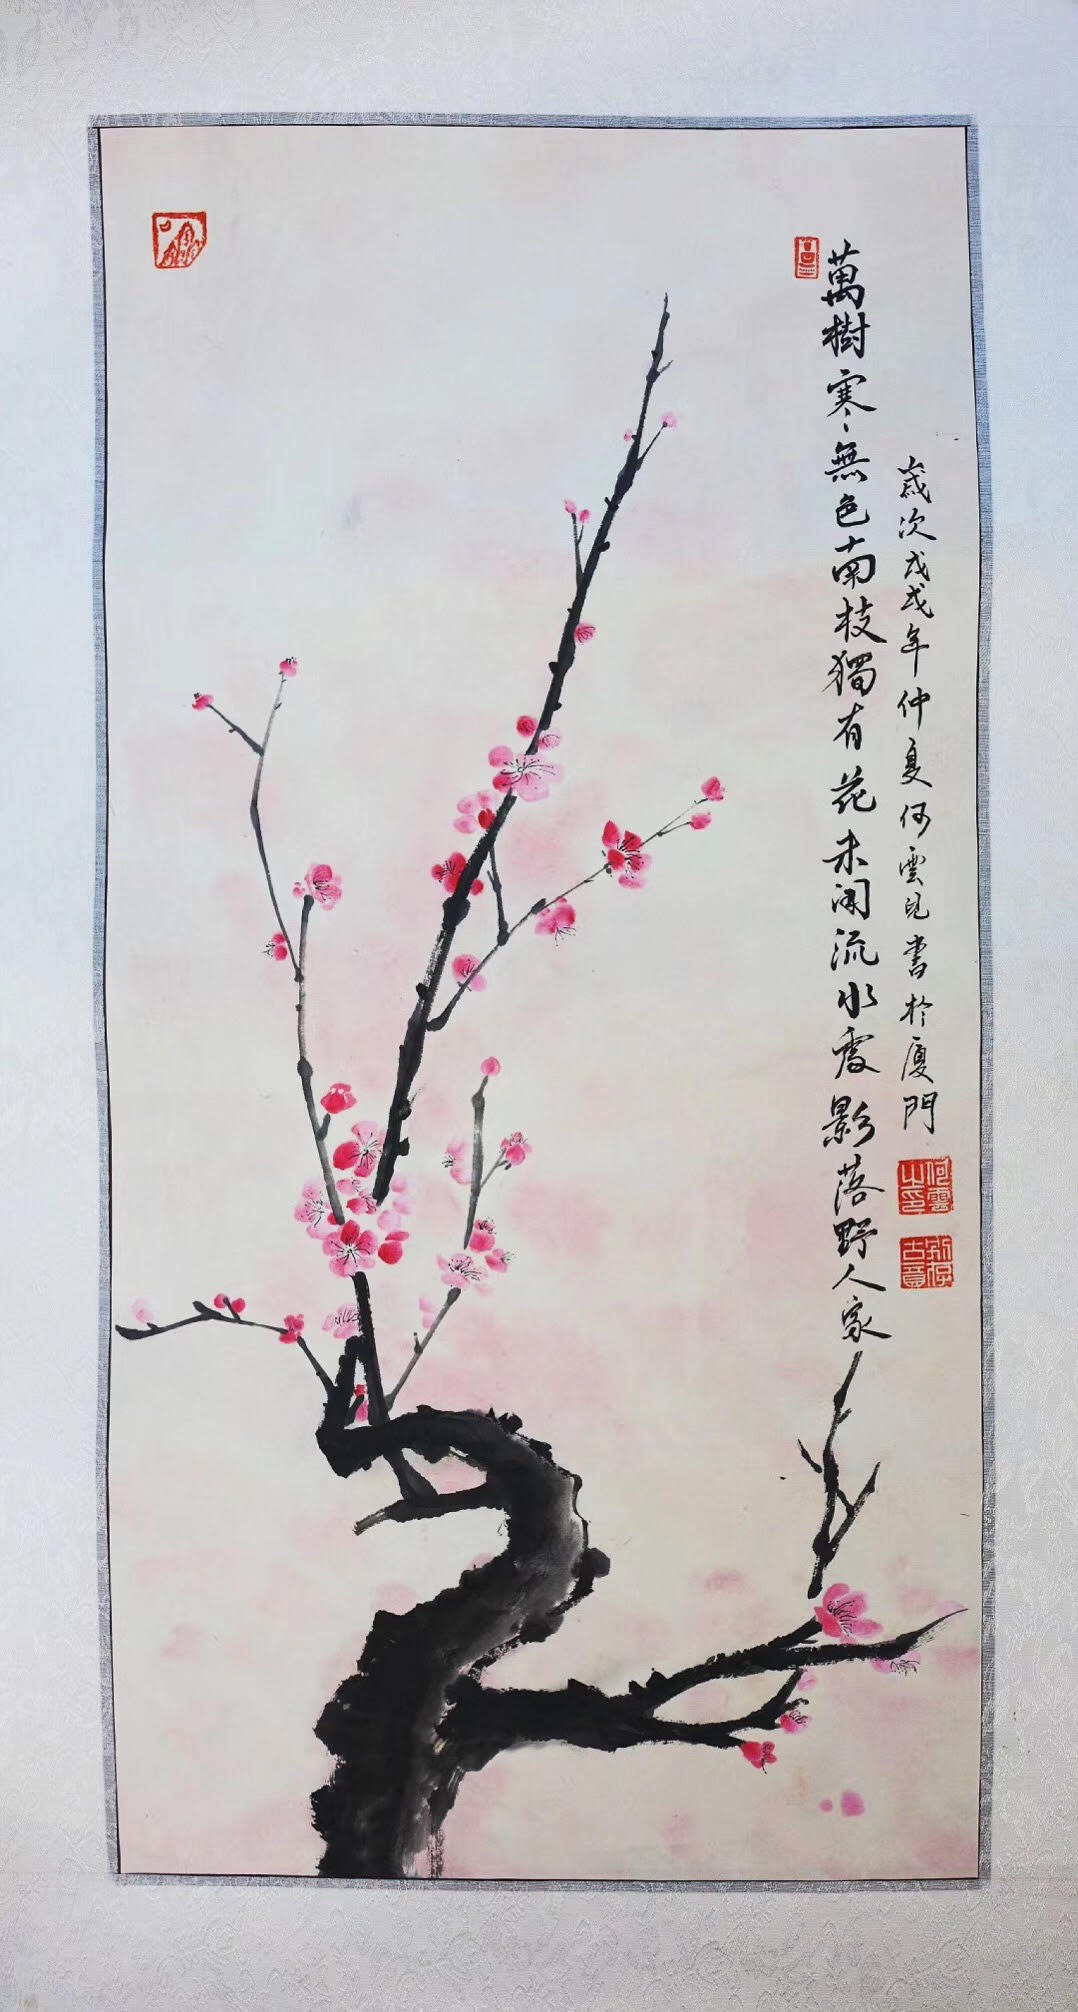 萬樹寒無色南枝獨有花香聞流水處影落野人家
歲次戊戌年仲夏何雲書於廈門
何雲之印